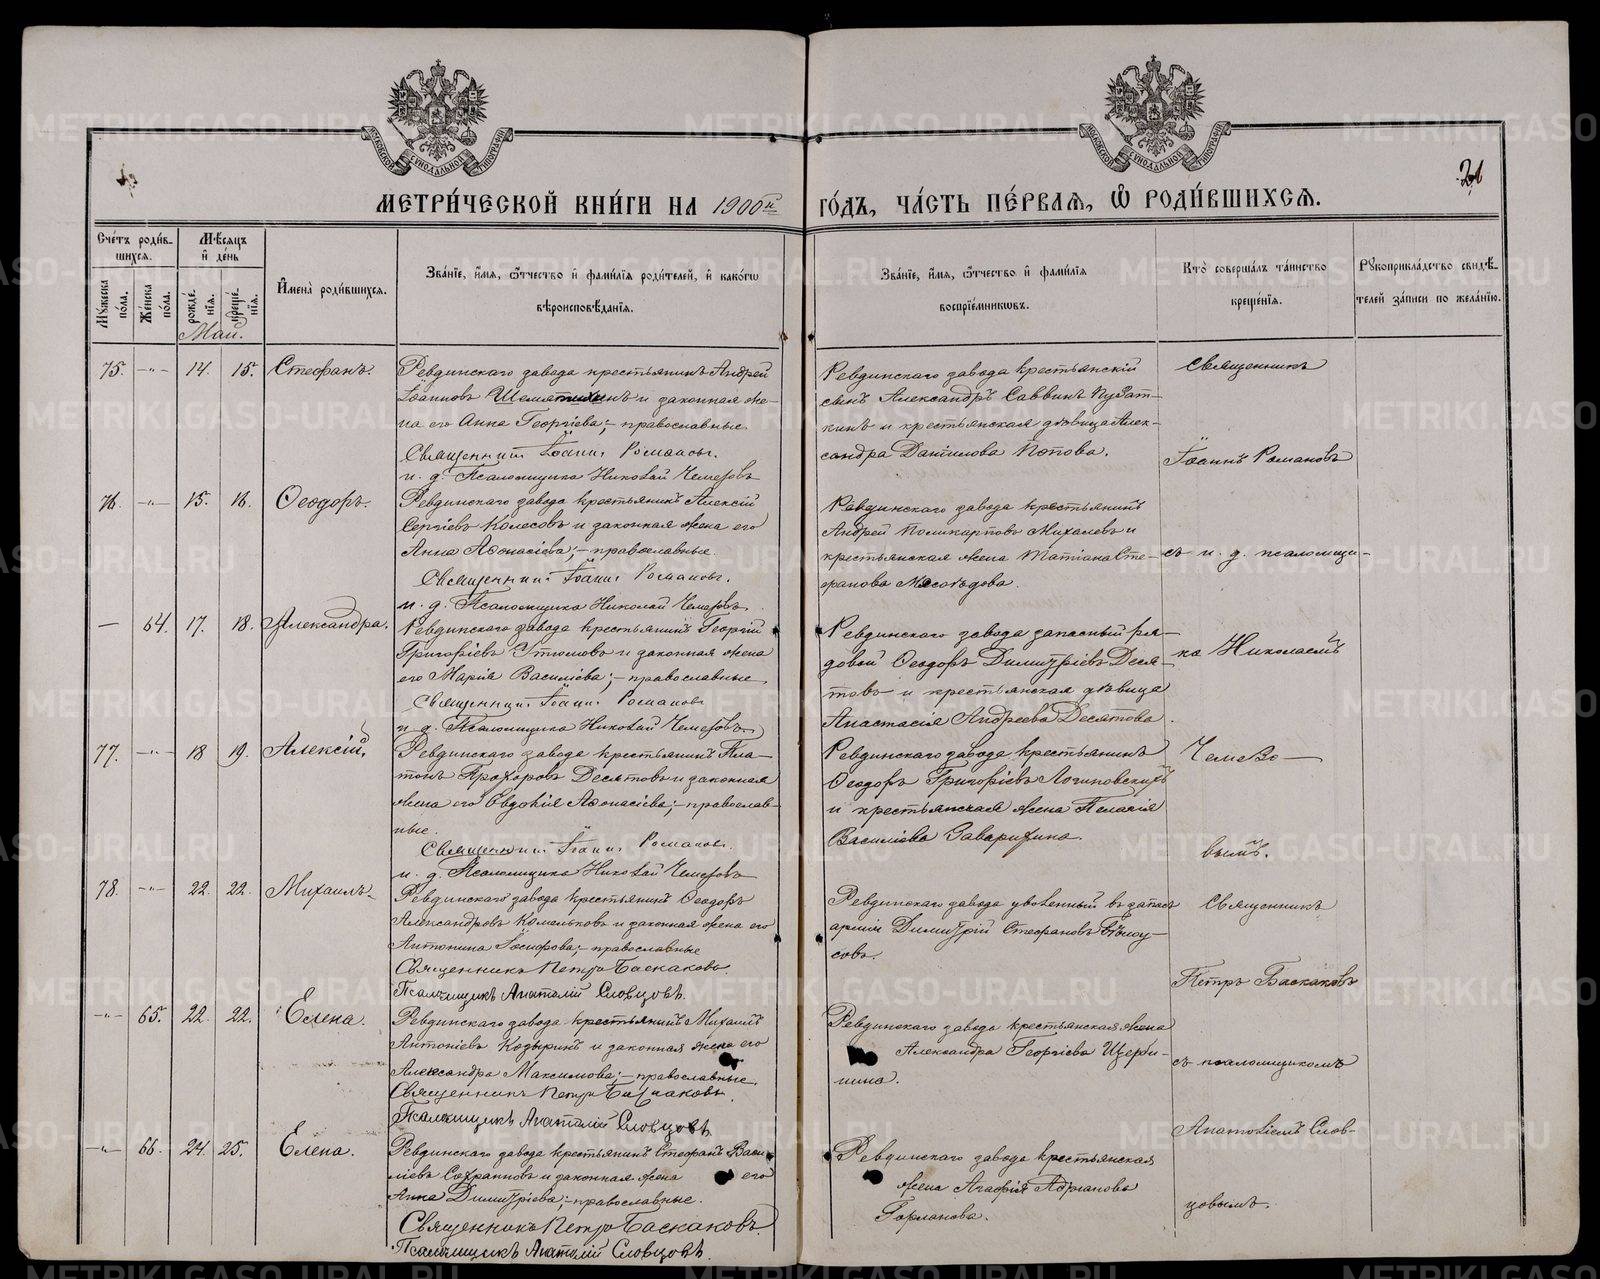 МЕТРИ́ЧЕСКОЙ КНИ́ГИ НА 1900й
ГО́ДЪ, ЧА́СТЬ ПЕ́РВАЯ, Ѽ РОДИ́ВШИХСЯ.
21
Сче́тъ роди́в-
шихся.
Мѣ́сяцъ
и҆ де́нь
Мꙋ́жеска по́ла.
Же́нска по́ла.
рожде́-
нїя.
креще́-
нїя.
И҆мена̀ роди́вшихся.
Зва́нїе, и҆́мя, ѻ҆́тчество и҆ фами́лїя роди́телей, и҆ како́гѡ
вѣроисповѣ́данїя.
Зва́нїе, и҆́мя, ѻ҆́тчество и҆ фами́лїя
воспрїе́мникѡвъ.
Кто̀ соверша́лъ та́инство
креще́нїя.
Рꙋкоприкла́дство свидѣ́-
телей за́писи по жела́нїю.
Май.
75. -"- 14. 15. Стефанъ.
Ревдинскаго завода крестьянинъ Андрей
Іоанновъ и законная же-
на его Анна Георгіева; православные.
Священникъ Іоаннъ Романовъ.
и. д. Псаломщика Николай Чемезовъ
Ревдинскаго завода крестьянскій
сынъ Александръ Саввинъ Пузат-
кинъ и крестьянская дѣвица Алек-
сандра Даніилова Попова.
Священникъ
Іоаннъ Романовъ
76. -"- 15. 16. Ѳеодоръ.
Ревдинскаго завода крестьянинъ Алексій
Сергіевъ Колесовъ и законная жена его
Анна Аѳонасіева; православные.
Священникъ Іоаннъ Романовъ.
и. д. Псаломщика Николай Чемезовъ.
Ревдинскаго завода крестьянинъ
Андрей Поликарповъ Михалевъ и
крестьянская жена Татіана Сте-
фанова Мясоѣдова.
съ и. д. псаломщи-
— 64. 17. 18. Александра.
Ревдинскаго завода крестьянинъ Георгій
Григоріевъ Утюмовъ и законная жена
его Марія Василіева; православные
Священникъ Іоаннъ Романовъ
и. д. Псаломщика Николай Чемезовъ
Ревдинскаго завода запасный ря-
довой Ѳеодоръ Димитріевъ Деся-
товъ и крестьянская дѣвица
Анастасія Андреева Десятова.
ка Николаемъ
77. -"- 18 19. Алексій.
Ревдинскаго завода крестьянинъ Пла-
тонъ Прохоровъ Десятовъ и законная
жена его Евдокія Аѳонасіева; православ-
ные.
Священникъ Іоаннъ Романовъ.
и. д. Псаломщика Николай Чемезовъ
Ревдинскаго завода крестьянинъ
Ѳеодоръ Григоріевъ Логиновскихъ
и крестьянская жена Пелагія
Василіева Заварихина.
Чемезо-
вымъ.
78. -"- 22. 22. Михаилъ
Ревдинскаго завода крестьянинъ Ѳеодоръ
Александровъ Комельковъ и законная жена его
Антонина Іосифова; православные
Священникъ Петръ Баскаковъ.
Псаломщикъ Анатолій Словцовъ.
Ревдинскаго завода уволенный въ запасъ
арміи Димитрій Стефановъ Бѣлоу-
совъ.
Священникъ
Петръ Баскаковъ
-"- 65. 22. 22. Елена.
Ревдинскаго завода крестьянинъ Михаилъ
Антоніевъ Козыринъ и законная жена его
Александра Максимова; православные.
Священникъ Петръ Баскаковъ.
Псаломщикъ Анатолій Словцовъ.
Ревдинскаго завода крестьянская жена
Александра Георгіева Щерби-
нина.
съ псаломщикомъ
Анатоліемъ Слов-
-"- 66. 24. 25. Елена.
Ревдинскаго завода крестьянинъ Стефанъ Васи-
ліевъ Сафрановъ и законная жена его
Анна Димитріева; православные.
Священникъ Петръ Баскаковъ.
Псаломщикъ Анатолій Словцовъ.
Ревдинскаго завода крестьянская
жена Агафія Адріанова
Горланова.
цовымъ.
METRIKI.GASO-URAL.RU